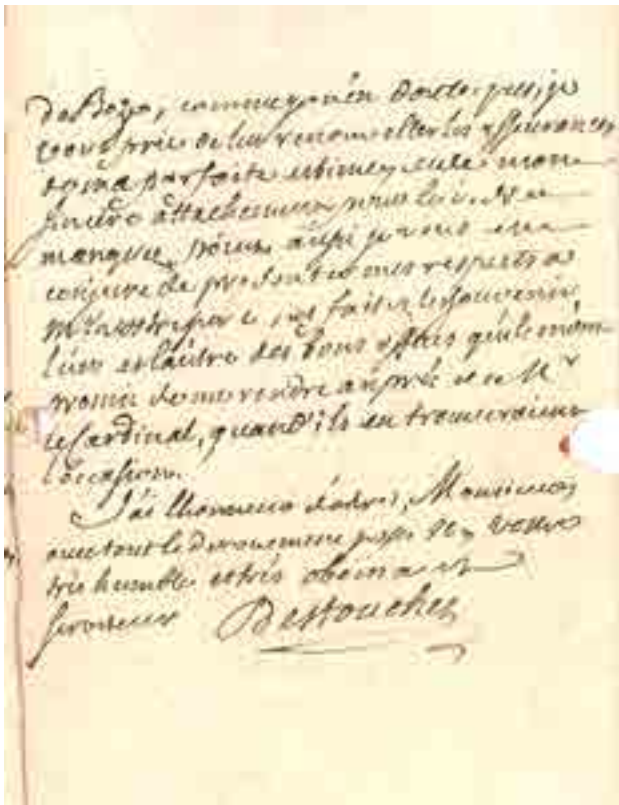 de Boze, comme je n'en doute pas, je
vous prie de lui renouveller les assurances
de ma parfaite estime, et de mon
sincere attachement pour lui. Ne
manquez point aussi je vous en
conjure de presenter mes respects a
Mr et faites les souvenir
l'un et l'autre des bons offices qu'ils m'ont
promis de me rendre auprès de Mr
le Cardinal, quand ils en trouveraient
l'occasion.
J'ai l'honneur d'être, Monsieur,
avec tout le devouement votre
très humble et très obeissant
serviteur Destouches